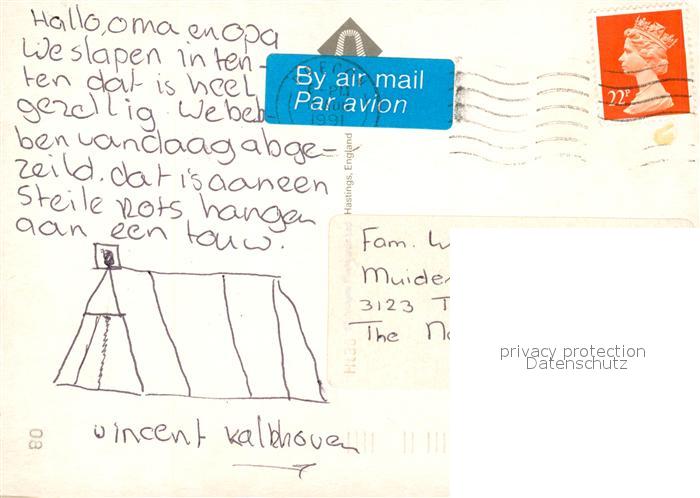 Hallo, oma en opa
We slapen in ten-
ten dat is heel
gezellig. We heb-
ben vandaag abge-
zeild. dat is aan een
steile rots hangen
aan een touw.
vincent kalkhoven
By air mail
Par avion
1991
22P
Hastings, England
Fam. W
Muider
3123 T
The Ne
privacy protection
Datenschutz
08